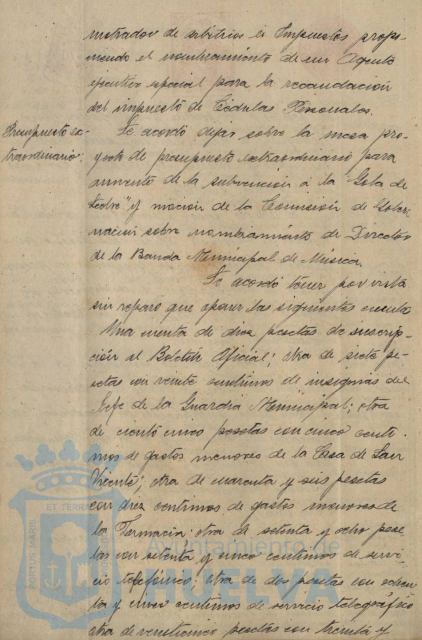 nistrador de arbitrios é Impuestos propo-
niendo el nombramiento de un Agente
ejecutivo especial para la recaudación
del impuesto de Cédulas Personales.
Presupuesto ex-
traordinario.
Se acordó dejar sobre la mesa pro-
yecto de presupuesto extraordinario para
aumento de la subvención á la "Gota de
Leche" y moción de la Comisión de Gober-
nación sobre nombramiento de Director
de la Banda Municipal de Música.
Se acordó tener por vista
sin reparo que oponer las siguientes cuentas
Una cuenta de diez pesetas de suscrip-
ción al Boletín Oficial; otra de siete pe-
setas con veinte centimos de insignias del
Jefe de la Guardia Municipal; otra
de ciento cinco pesetas con cinco centi-
mos de gastos menores de la Casa de San
Vicente; otra de cuarenta y seis pesetas
con diez centimos de gastos menores de
la Farmacia; otra de setenta y ocho pese-
tas con setenta y cinco centimos de servi-
cio telefónico; otra de dos pesetas con ochen-
ta y cinco centimos de servicio telegráfico
otra de veinticinco pesetas con treinta y
PORTUS MARIS ET TERRÆ
HUELVA